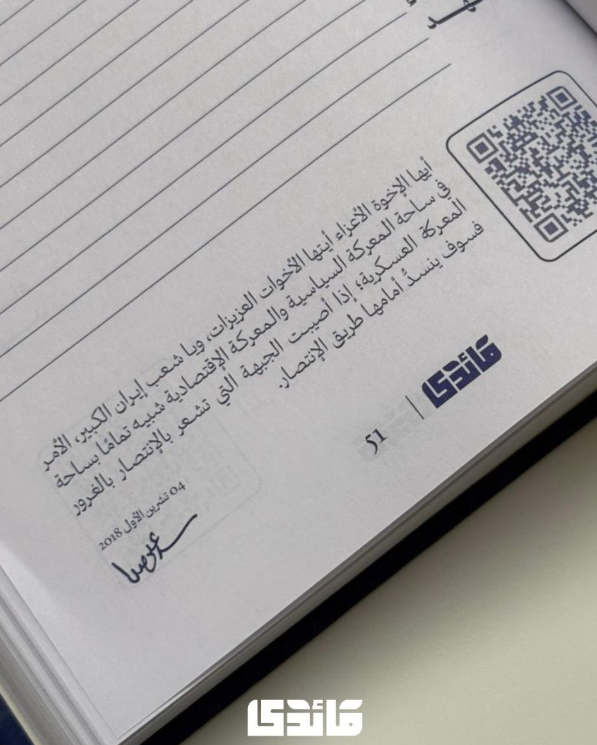 أيها الإخوة الأعزاء أيتها الأخوات العزيزات، ويا شعب إيران الكبير، الأمر
في ساحة المعركة السياسية والمعركة الإقتصادية شبيه تمامًا بساحة
المعركة العسكرية؛ إذا أصيبت الجبهة التي تشعر بالإنتصار بالغرور
فسوف ينسدُّ أمامها طريق الإنتصار.
04 تشرين الأول 2018
51 | قائدي
قائدي